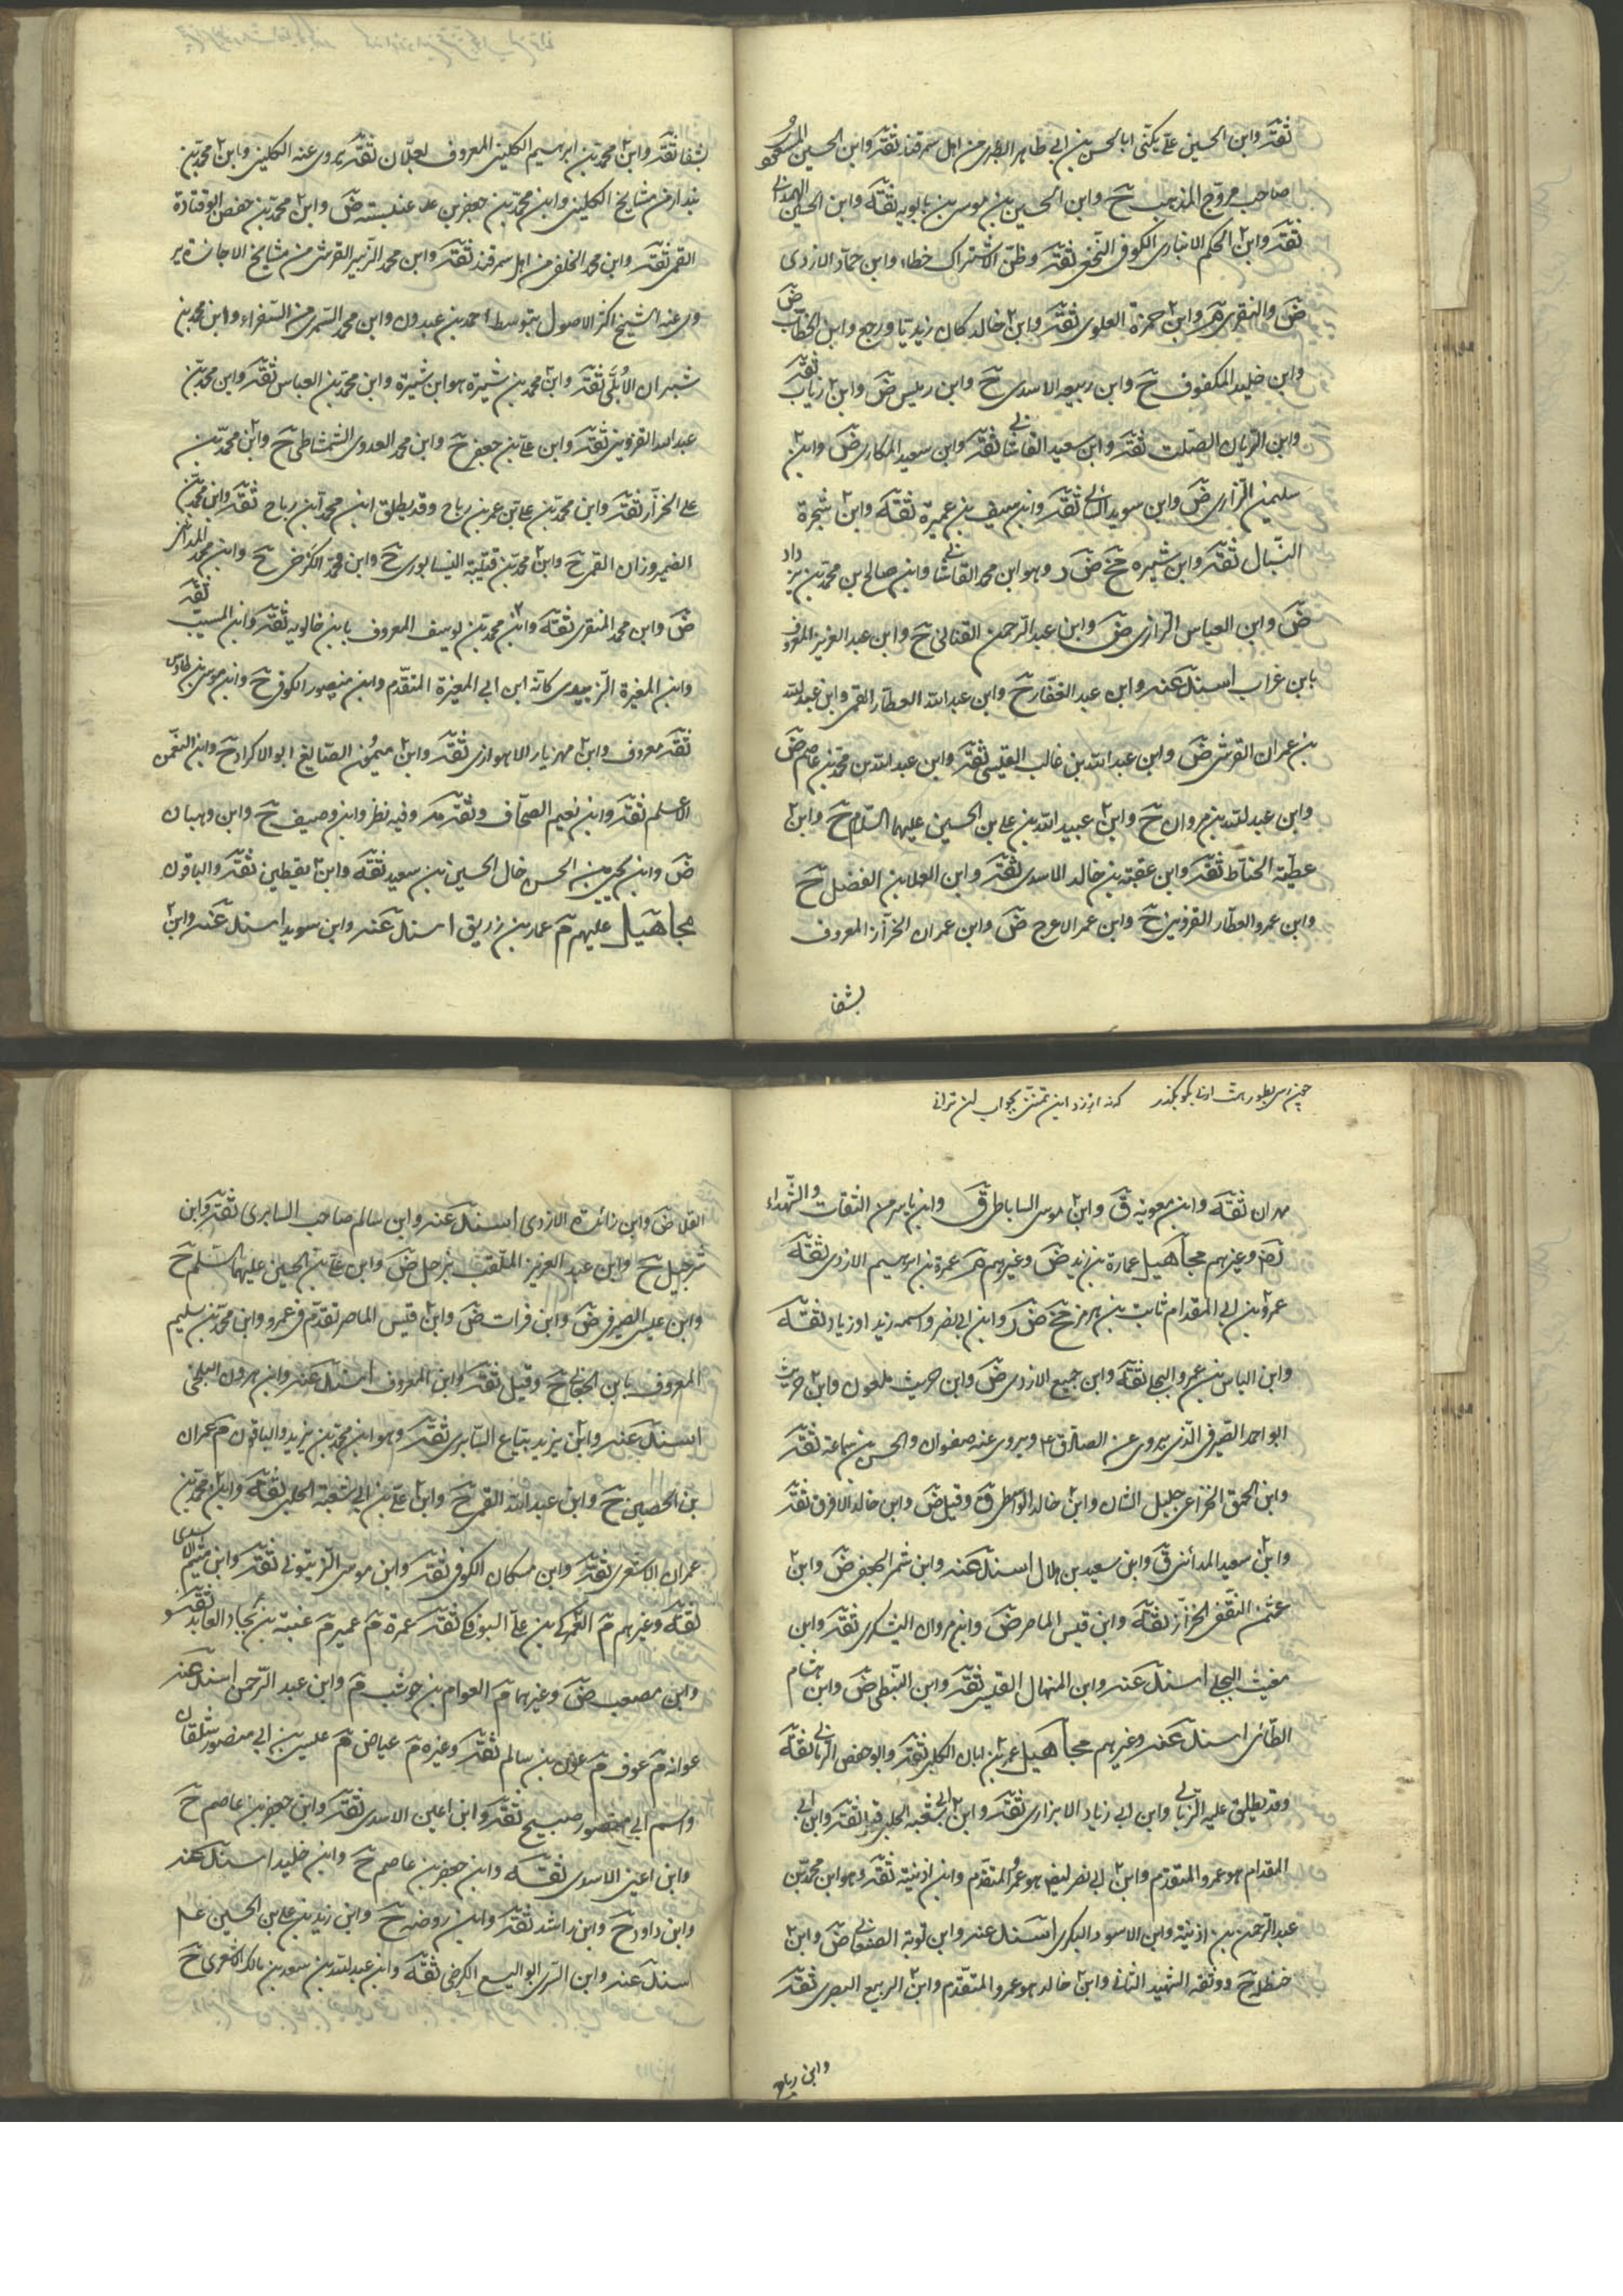 ثقة وابن الحسين علي يكنى ابا الحسن بن ابي طاهر الطبري من اهل سمرقند ثقة وابن الحسين المسعودي
صاحب مروج الذهب ح وابن الحسين بن موسى بن بابويه ثقة وابن الحسين الهمداني
ثقة وابن الحكم الانباري الكوفي النخعي ثقة وظن الاشتراك خطاء وابن حماد الازدي
ض والمنقري وابن حمزة العلوي ثقة وابن خالد كان زيديا ورجع وابن الخطاب ض
وابن خليد المكفوف ح وابن ربيعه الاسدي ح وابن رميس ض وابن رباب ثقة
وابن الريان الصلت ثقة وابن سعيد القاشاني ثقة وابن سعيد المكاري ض وابن
سليمن الزراري ض وابن سويد السائي ثقة وابن سيف بن عميرة ثقة وابن شجرة
النبال ثقة وابن شيره جخ ض ر وهو ابن محمد القاشاني وابن صالح بن محمد بن يزداد
ض وابن العباس الرازي ض وابن عبد الرحمن القناني ح وابن عبد العزيز المعروف
بابن غراب اسند عنه وابن عبد الغفار ح وابن عبد الله العطار القمي وابن عبد الله
بن عمران القرشي ض وابن عبد الله بن غالب القيسي ثقة وابن عبد الله بن محمد بن عاصم ض
وابن عبد الله بن مروان ح وابن عبيد الله بن علي بن الحسين عليهما السلام ح وابن
عطية الحناط ثقة وابن عقبة بن خالد الاسدي ثقة وابن العلا بن الفضل ح
وابن عمرو العطار القزويني ح وابن عمر الاعرج ض وابن عمران الخزاز المعروف
بشفا
بشفا ثقة وابن محمد بن ابرهيم الكليني المعروف بعلان ثقة يروى عنه الكليني وابن محمد بن
بندار من مشايخ الكليني وابن محمد بن جعفر بن عنبسة ض وابن محمد بن حفص ابو قتادة
القمي ثقة وابن محمد الخلفي من اهل سمرقند ثقة وابن محمد الزبير القرشي من مشايخ الاجازة ير
وى عنه الشيخ اكثر الاصول بتوسط احمد بن عبدون وابن محمد السمري من السفراء وابن محمد بن
شيران الابلي ثقة وابن محمد بن شيرة هو ابن شيرة وابن محمد بن العباس ثقة وابن محمد بن
عبد الله القزويني ثقة وابن علي بن جعفر ح وابن محمد العدوي الشمشاطي ح وابن محمد بن
علي الخزاز ثقة وابن محمد بن علي بن عمر بن رباح وقد يطلق ابن محمد ابن رباح ثقة وابن محمد بن
الفيروزان القمي ح وابن محمد بن قتيبة النيسابوري ح وابن محمد الكرخي ح وابن محمد المدائني
ض وابن محمد المنقري ثقة وابن محمد بن يوسف المعروف بابن خالويه ثقة وابن المسيب ثقة
وابن المغيرة الزبيدي كانه ابن ابي المغيرة المتقدم وابن منصور الكوفي ح وابن موسى بن طاوس
ثقة معروف وابن مهزيار الاهوازي ثقة وابن ميمون الصايغ ابو الاكراد ح وابن النعمن
الاعلم ثقة وابن نعيم الصحاف وثقة مد وفيه نظر وابن وصيف ح وابن وهبان
ض وابن يحيى بن الحسن خال الحسين بن سعيد ثقة وابن يقطين ثقة والباقون
مجاهيل عليهم م عمار بن زريق اسند عنه وابن سويد اسند عنه وابن
چون رسى بطور همت ارنى بگو بگذر كه نه ارزد اين تمنى بجواب لن ترانى
مهران ثقة وابن معوية ق وابن موسى الساباطي ق وابن ياسر من الثقات والشهداء
وغيرهم مجاهيل عمارة بن زيد ض وغيرهم م عمرة بن ابرهيم الازدي ثقة
عمرو بن ابي المقدام ثابت بن هرمز جخ ض ر وابن ابي نصر واسمه زيد او زياد ثقة
وابن الياس بن عمرو البجلي ثقة وابن جميع الازدي ض وابن حريث ملعون وابن حريث
ابو احمد الصيرفي الذي يروى عن الصادق ع ويروى عنه صفوان والحسن بن سماعة ثقة
وابن الحمق الخزاعي جليل الشان وابن خالد الواسطي ق وقيل ض وابن خالد الافرق ثقة
وابن سعيد المدائني ق وابن سعيد بن هلال اسند عنه وابن شمر الجعفي ض وابن
عثمن الثقفي الخزاز ثقة وابن قيس الماصر ض وابن مروان اليشكري ثقة وابن
مغيث البجلي اسند عنه وابن المنهال القيسي ثقة وابن النبطي ض وابن هشام
الطائي اسند عنه وغيرهم مجاهيل عمر بن ابان الكلبي ثقة وابو حفص الرباني ثقة
وقد يطلق عليه الزبالي وابن ابي زياد الابزاري ثقة وابن ابي شعبة الحلبي ثقة وابن ابي
المقدام هو عمرو المتقدم وابن ابي نصر ليفه هو عمرو المتقدم وابن اذينة ثقة وهو ابن محمد بن
عبد الرحمن بن اذينة وابن الاسود البكري اسند عنه وابن توبة الصنعاني ض وابن
حنظلة ح ووثقه الشهيد الثاني وابن خالد هو عمرو المتقدم وابن الربيع البصري ثقة
وابن رياح
القلا ض وابن زائدة الازدي اسند عنه وابن سالم صاحب السابري ثقة وابن
شرجيل ح وابن عبد العزيز الملقب بزحل ض وابن علي بن الحسين عليهما السلم ح
وابن عيسى الصيرفي ض وابن فرات ض وابن قيس الماصر تقدم في عمرو وابن محمد بن سليم
المعروف بابن الجعابي ح وقيل ثقة وابن المعروف اسند عنه وابن هرون البلخي
اسند عنه وابن يزيد بياع السابري ثقة وهو ابن محمد بن يزيد والباقون م عمران
بن الحصين ح وابن عبد الله القمي ح وابن علي بن ابي شعبة الحلبي ثقة وابن محمد بن
عمران الاشعري ثقة وابن مسكان الكوفي ثقة وابن موسى الزيتوني ثقة وابن ميثم الاسدي
ثقة وغيرهم م العمركي بن علي البوفكي ثقة عمرة م عمير م عنبسة بن بجاد العابد ثقة
وابن مصعب ض وغيرهما م العوام بن حوشب م وابن عبد الرحمن اسند عنه
عوانه م عوف م عون بن سالم ثقة وغيره م عياض م عيسى بن ابي منصور شلقان
واسم ابي منصور صبيح ثقة وابن اعين الاسدي ثقة وابن جعفر بن عاصم ح
وابن اعين الاسدي ثقة وابن جعفر بن عاصم ح وابن خليد اسند عنه
وابن داود ح وابن راشد ثقة وابن روضه ح وابن زيد بن علي بن الحسين ع م
اسند عنه وابن السري ابو اليسع الكرخي ثقة وابن عبد الله بن سعد بن مالك الاشعري ح